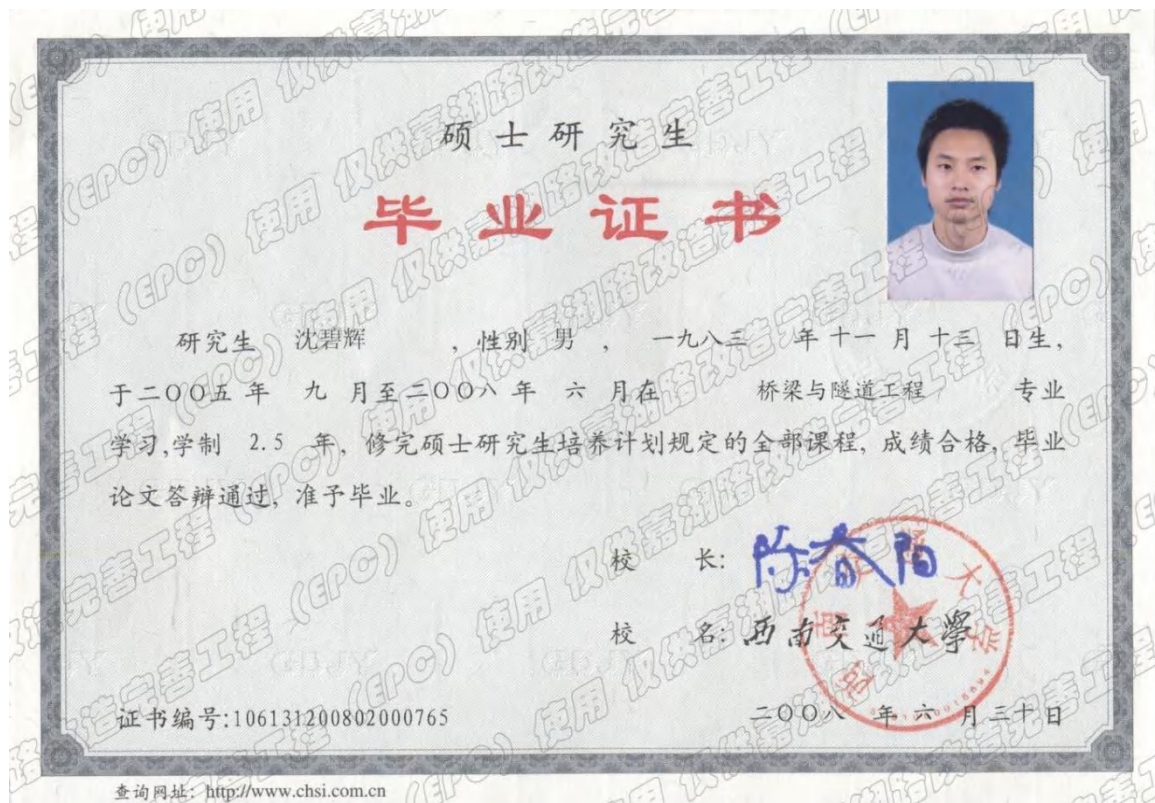 硕士研究生
毕业证书
研究生 沈碧辉 ，性别 男 ， 一九八三 年 十一 月 十三 日生，
于二〇〇五 年 九 月至二〇〇八 年 六 月在 桥梁与隧道工程 专业
学习,学制 2.5 年，修完硕士研究生培养计划规定的全部课程，成绩合格，毕业
论文答辩通过，准予毕业。
校 长：陈春阳
校 名：西南交通大學
证书编号:106131200802000765
二〇〇八 年 六 月三十日
查询网址：http://www.chsi.com.cn
仅供嘉湖路改造完善工程（EPC）使用